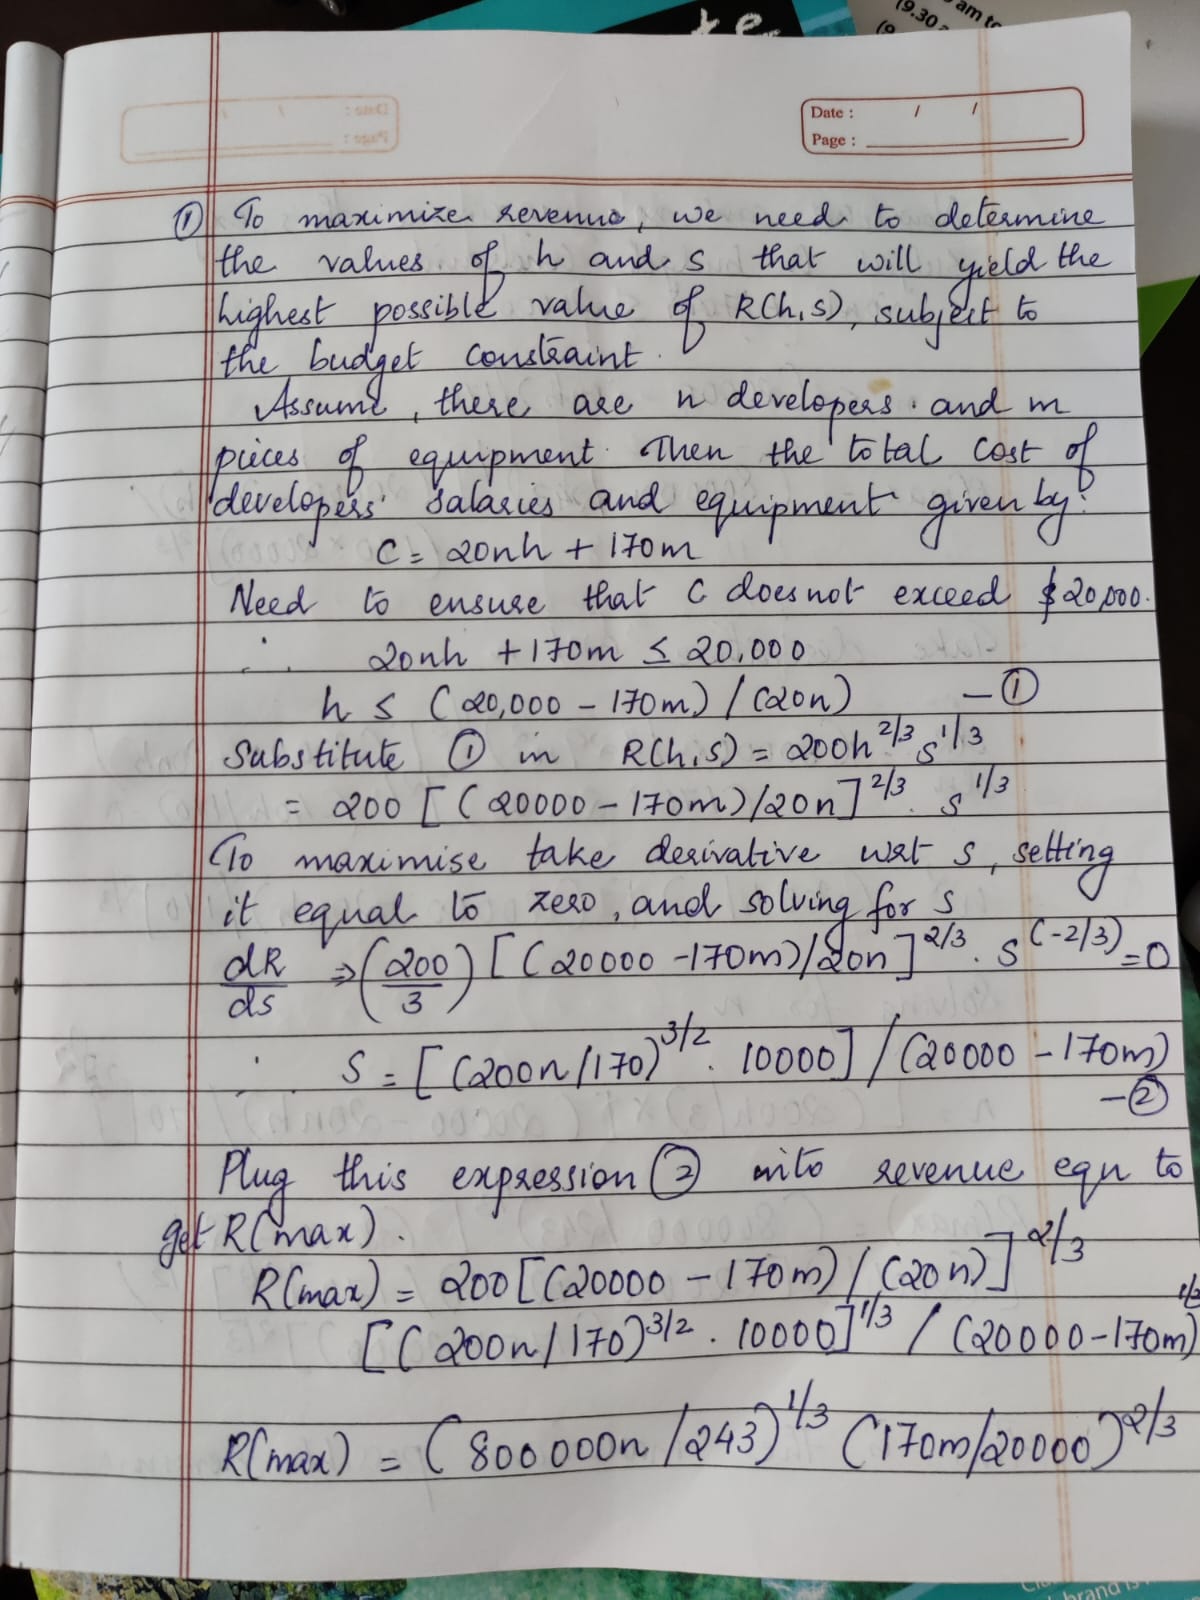 te
(9.30 am to
(9
Date : / /
Page :
① To maximize revenue, we need to determine
the values of h and s that will yield the
highest possible value of R(h,s), subject to
the budget constraint.
Assume, there are n developers. and m
pieces of equipment. Then the total cost of
developers' salaries and equipment given by:
C = 20nh + 170m
Need to ensure that C does not exceed $20,000.
∴ 20nh + 170m ≤ 20,000
h ≤ (20,000 - 170m) / (20n) - ①
Substitute ① in R(h,s) = 200h^2/3 s^1/3
= 200 [(20000 - 170m)/20n]^2/3 . s^1/3
To maximise take derivative wrt s, setting
it equal to zero, and solving for s
dR/ds ⇒ (200/3) [(20000 - 170m)/20n]^2/3 . s^(-2/3) = 0
∴ S = [(200n/170)^3/2 . 10000] / (20000 - 170m)
- ②
Plug this expression ② into revenue eqn to
get R(max).
R(max) = 200[(20000 - 170m) / (20n)]^2/3
[(200n/170)^3/2 . 10000]^1/3 / (20000-170m)^1/3
R(max) = (800000n/243)^1/3 (170m/20000)^2/3
brand is